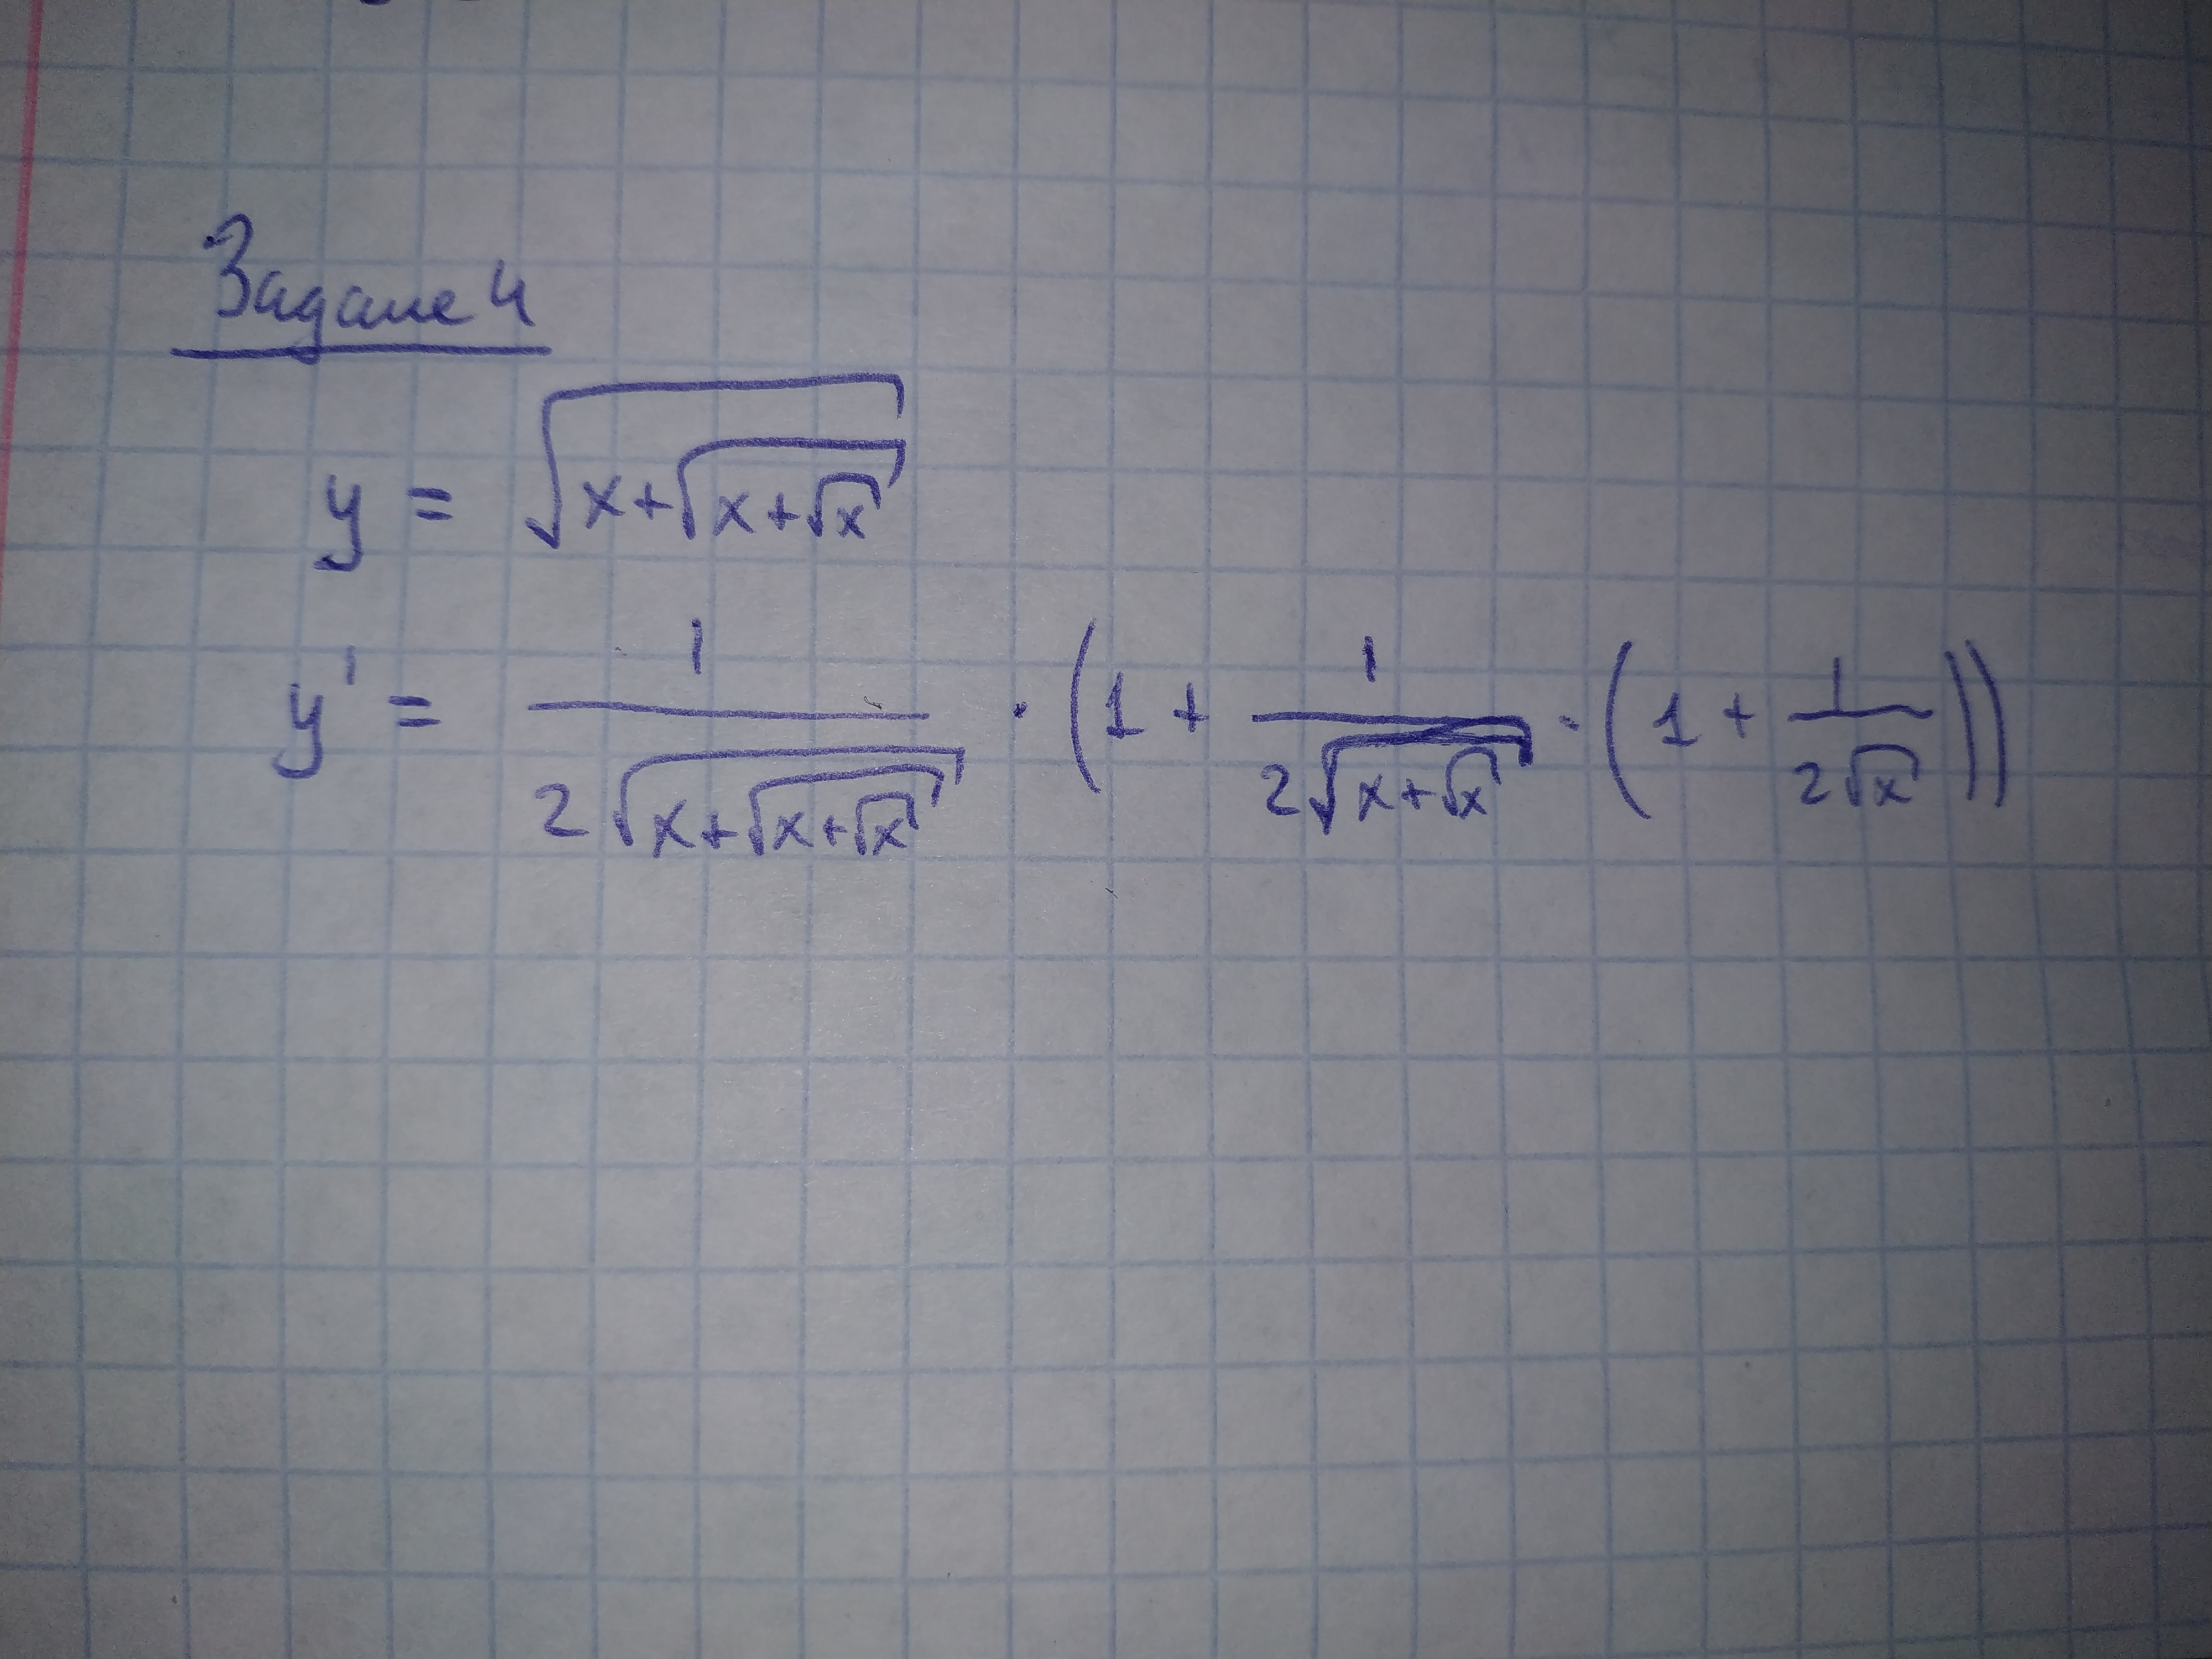 Задание 4
y = √(x+√(x+√x))
y' = 1/(2√(x+√(x+√x))) · (1 + 1/(2√(x+√x)) · (1 + 1/(2√x)))